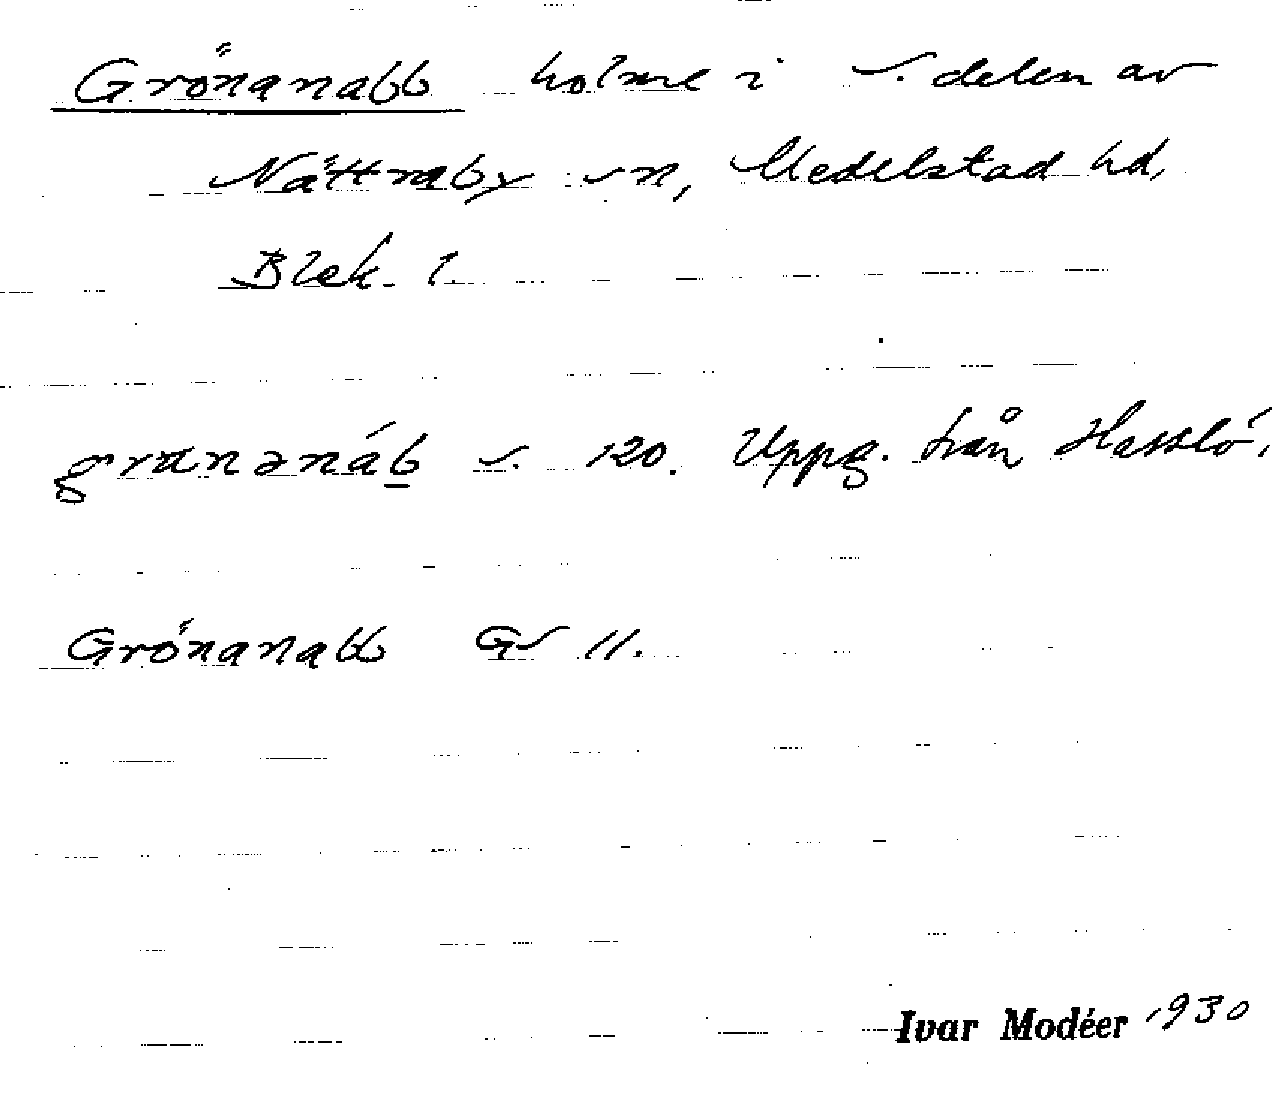 Grönanabb holme i s. delen av
Nättraby sn, Medelstad hd,
Blek. l.
s. 120. Uppg. från Hasslö.
Grönanabb GS 11.
Ivar Modéer 1930